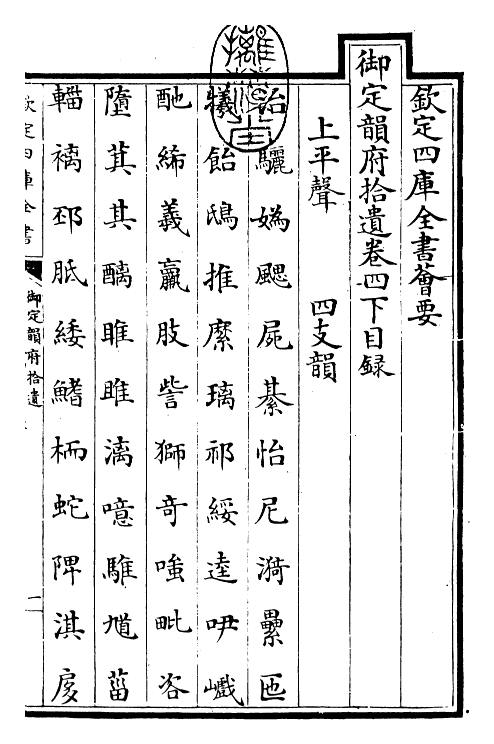 欽定四庫全書薈要
御定韻府拾遺卷四下目録
上平聲 四支韻
治驪媯颸屍綦怡尼漪纍匜
犧飴鴟推縻璃祁綏逵咿巇
酏絺義羸肢訾獅奇嗤毗咨
墮萁其醨睢雎漓噫騅馗菑
輜褵邳胝緌鰭栭蛇陴淇㢋
欽定四庫全書
御定韻府拾遺
一